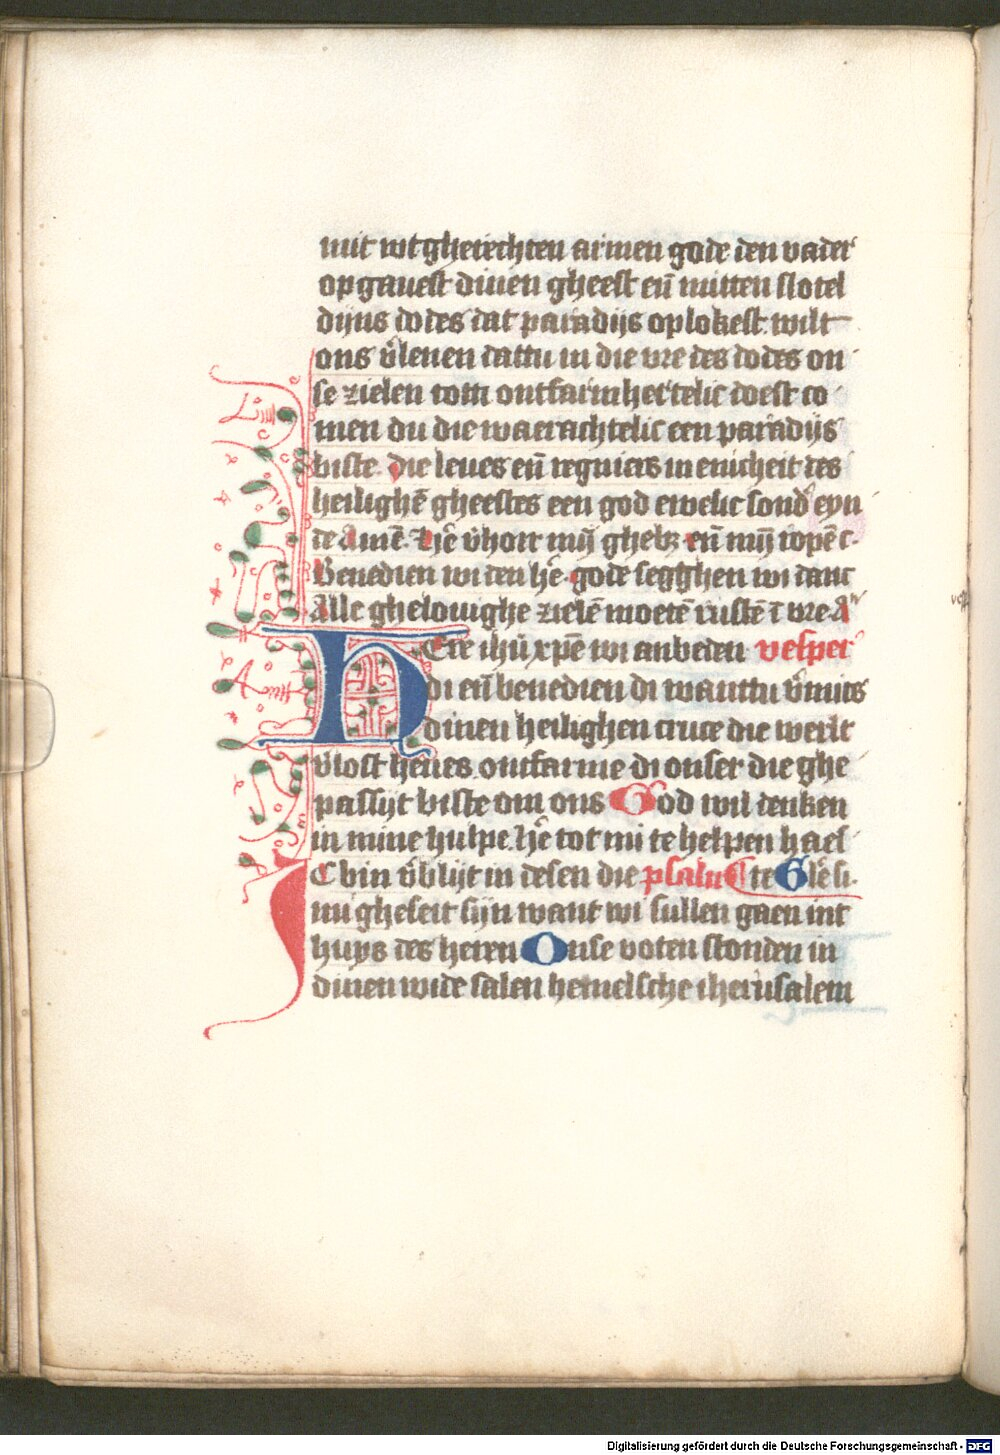 mit wtgherechten armen gode den vader
opgauest dinen gheest eñ mitten slotel
dijns dodes dat paradijs oplokest wilt
ons v̄lenen dattu in die vre des dodes on
se zielen tom ontfarmhertelic doest co
men du die waerachtelic een paradijs
biste. die leues eñ regniers in enicheit des
heilighē gheestes een god ewelic sond' eyn
de Amē. hē v̄hoer mȳ ghebz eñ mȳ ropē c.
Benedien wi den hē. gode segghen wi danc
Alle ghelouighe zielē moetē rustē ī vre. A
HEre ihū xpē wi anbeden vesper
di eñ benedien di wanttu v̄mits
dinen heilighen cruce die werlt
v̄lost heues ontfarme di onser die ghe
passijt biste om ons God wil denken
in mine hulpe. hē tot mi te helpen hael
C bin v̄blijt in desen die psalm te Glē si.
mi gheseit sijn want wi sullen gaen int
huys des heren Onse voten stonden in
dinen wide salen hemelsche iherusalem
Digitalisierung gefördert durch die Deutsche Forschungsgemeinschaft - DFG